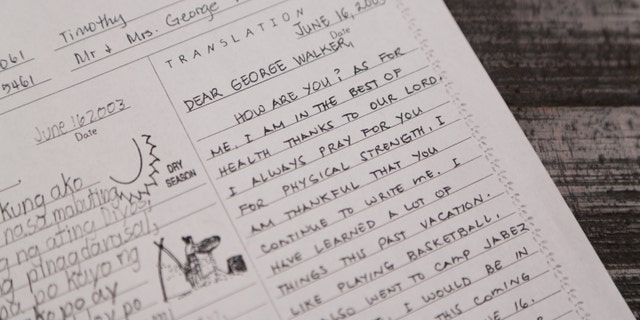 061
Timothy
5461
Mr & Mrs. George
TRANSLATION
June 16, 2003
Date
DEAR GEORGE WALKER,
HOW ARE YOU? AS FOR
ME, I AM IN THE BEST OF
HEALTH THANKS TO OUR LORD.
I ALWAYS PRAY FOR YOU
FOR PHYSICAL STRENGTH. I
AM THANKFUL THAT YOU
CONTINUE TO WRITE ME. I
HAVE LEARNED A LOT OF
THINGS THIS PAST VACATION.
LIKE PLAYING BASKETBALL.
ALSO WENT TO CAMP JABEZ
I WOULD BE IN
THIS COMING
16.
June 16 2003
Date
DRY
SEASON
kung ako
nasa mabuting
ng ating Diyos
ng pinagdarasal
po kayo ng
ko po ay
po